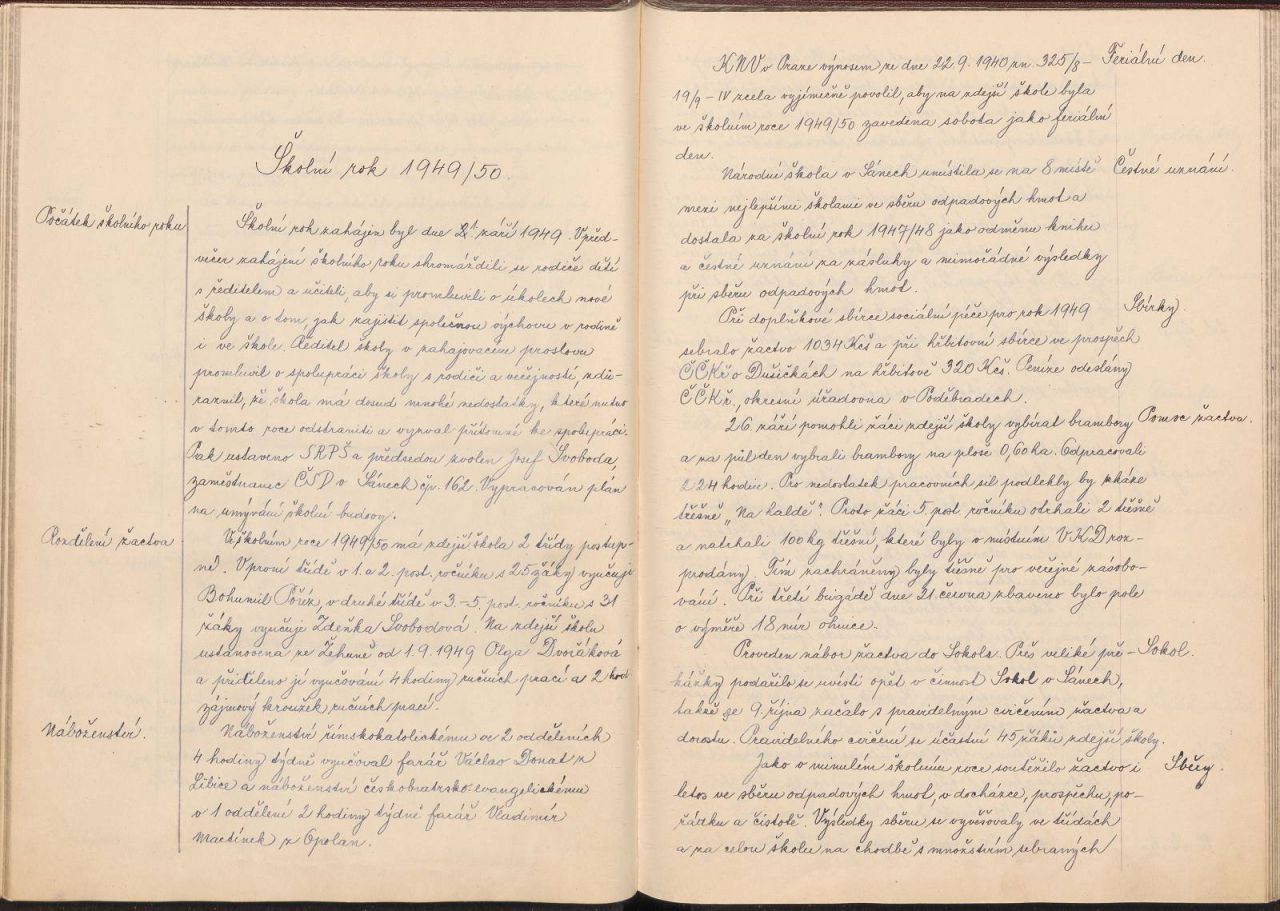 Školní rok 1949/50.
Počátek školního roku
Školní rok zahájen byl dne 1. září 1949. Vpřed-
večer zahájení školního roku shromáždili se rodiče dětí
s ředitelem a učiteli, aby si promluvili o úkolech nové
školy a o tom, jak zajistit společnou výchovu v rodině
i ve škole. Ředitel školy v zahajovacím proslovu
promluvil o spolupráci školy s rodiči a veřejností, zdů-
raznil, že škola má dosud mnohé nedostatky, které nutno
v tomto roce odstraniti a vyzval přítomné ke spolupráci.
Pak ustaveno SRPŠ a předsedou zvolen Josef Svoboda,
zaměstnanec ČSD v Sánech čp. 162. Vypracován plán
na umývání školní budovy.
Rozdělení žactva
Ve školním roce 1949/50 má zdejší škola 2 třídy postup-
né. V první třídě v 1. a 2. post. ročníku s 25 žáky vyučuje
Bohumil Poříz, v druhé třídě v 3.-5. post. ročníku s 31
žáky vyučuje Zdeňka Svobodová. Na zdejší školu
ustanovena ze Žehuně od 1.9.1949 Olga Dvořáková
a přiděleno jí vyučování 4 hodiny ručních prací a 2 hod.
zájmový kroužek ručních prací.
Náboženství.
Náboženství římskokatolickému ve 2 odděleních
4 hodiny týdně vyučoval farář Václav Donat z
Libice a náboženství českobratrsko-evangelickému
v 1 oddělení 2 hodiny týdně farář Vladimír
Martínek z Opolan.
KNV v Praze výnosem ze dne 22.9.1940 zn. 325/8- Feriální den.
19/9-IV zcela vyjímečně povolil, aby na zdejší škole byla
ve školním roce 1949/50 zavedena sobota jako feriální
den.
Národní škola v Sánech umístila se na 8 místě Čestné uznání.
mezi nejlepšími školami ve sběru odpadových hmot a
dostala za školní rok 1947/48 jako odměnu knihu
a čestné uznání za zásluhy a mimořádné výsledky
při sběru odpadových hmot.
Při doplňkové sbírce sociální péče pro rok 1949 Sbírky.
sebralo žactvo 1034 Kčs a při hřbitovní sbírce ve prospěch
ČČKř o Dušičkách na hřbitově 320 Kčs. Peníze odeslány
ČČKř, okresní úřadovna v Poděbradech.
26. září pomohli žáci zdejší školy vybírat brambory Pomoc žactva.
a za půl den vybrali brambory na ploše 0,60 ha. Odpracovali
224 hodin. Pro nedostatek pracovních sil podlehly by zkáze
třešně „Na haldě". Proto žáci 5. post. ročníku otrhali 2 třešně
a natrhali 100 kg třešní, které byly v místním VKD roz-
prodány. Tím zachráněny byly třešně pro veřejné zásobo-
vání. Při třetí brigádě dne 21. června zbaveno bylo pole
o výměře 18 měr ohnice.
Proveden nábor žactva do Sokola. Přes veliké pře- Sokol.
kážky podařilo se uvésti opět v činnost Sokol v Sánech,
takže se 9. října začalo s pravidelným cvičením žactva a
dorostu. Pravidelného cvičení se účastní 45 žáků zdejší školy.
Jako v minulém školním roce soutěžilo žactvo i Sběry.
letos ve sběru odpadových hmot, v docházce, prospěchu, po-
řádku a čistotě. Výsledky sběru se vyvěšovaly ve třídách
a za celou školu na chodbě s množstvím sebraných